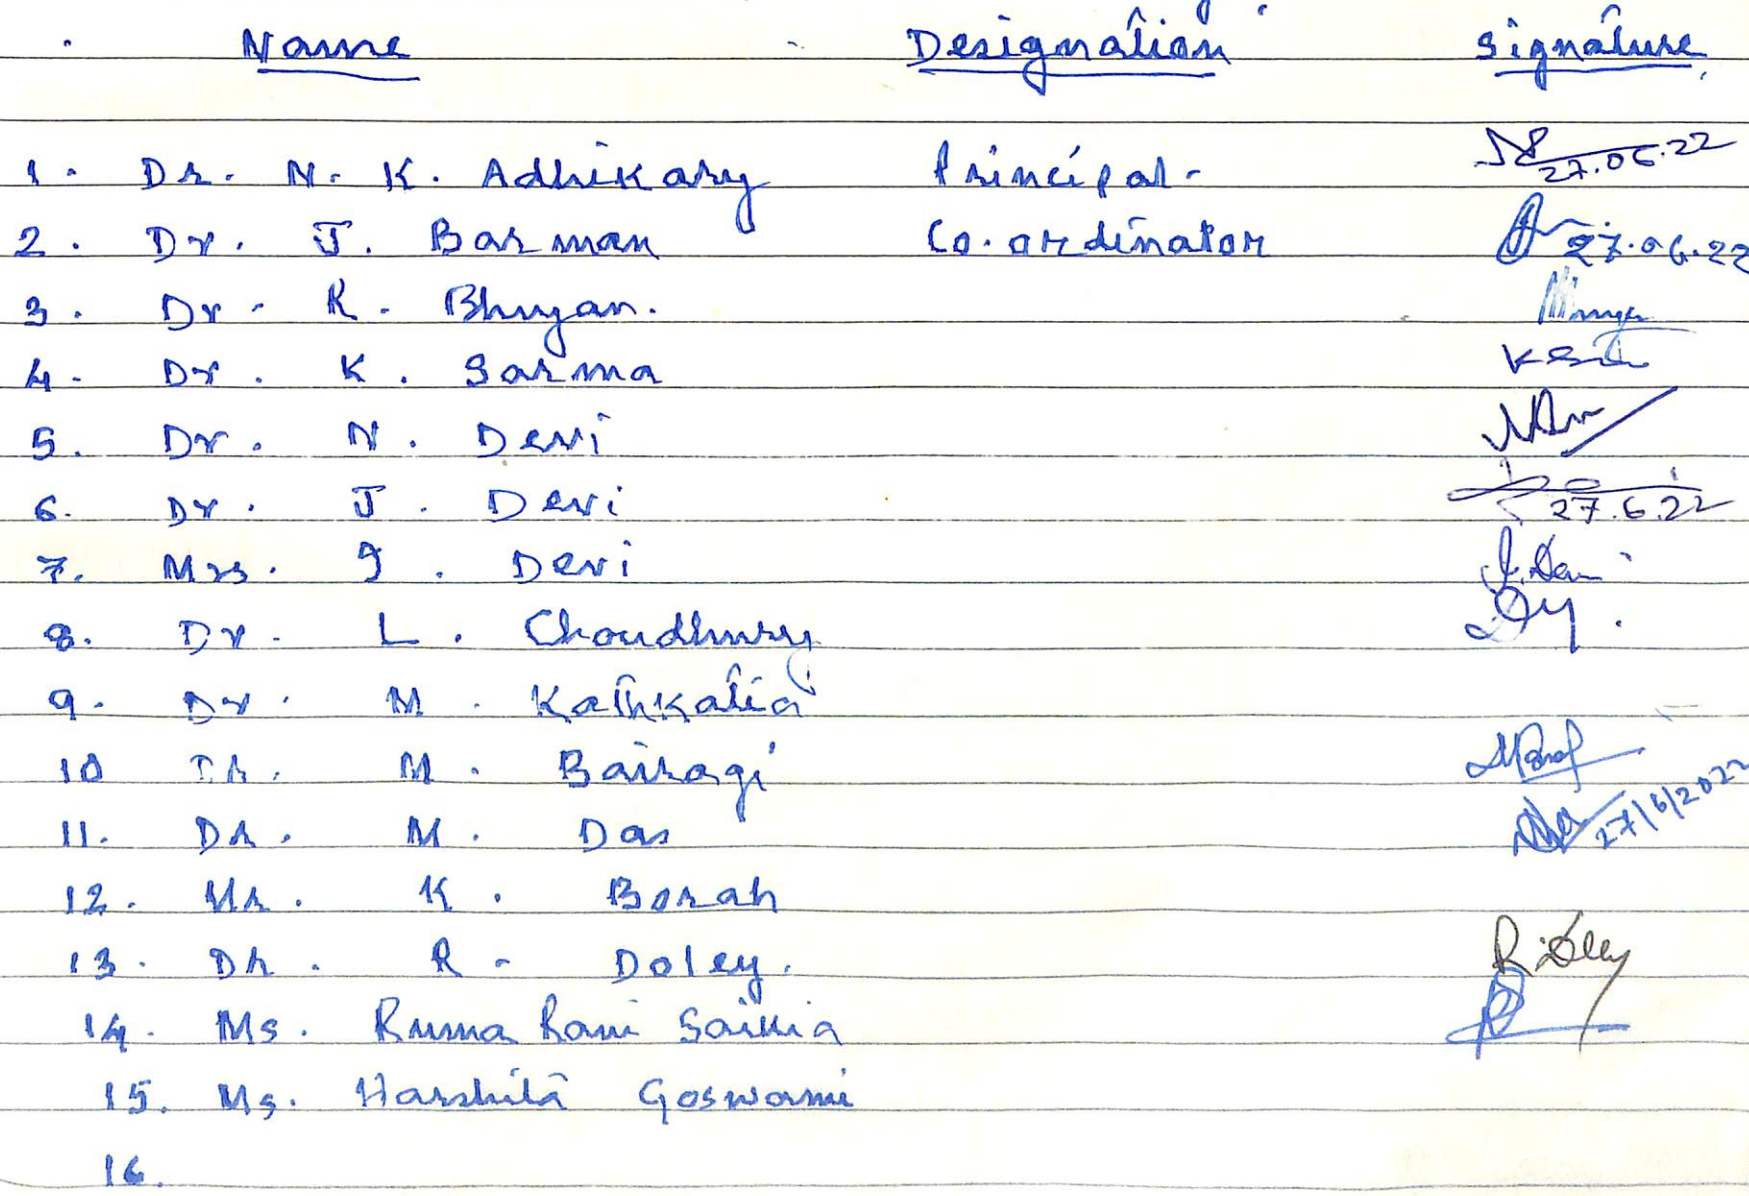 Name Designation Signature
1. Dr. N. K. Adhikary Principal. 27.06.22
2. Dr. J. Barman Co-ordinator 27.06.22
3. Dr. R. Bhuyan.
4. Dr. K. Sarma
5. Dr. N. Devi
6. Dr. J. Devi 27.6.22
7. Mrs. I. Devi
8. Dr. L. Choudhury
9. Dr. M. Kathkatia
10 Dr. M. Bairagi
11. Dr. M. Das 27/6/2022
12. Mr. K. Borah
13. Dr. R. Doley.
14. Ms. Ruma Rani Saikia
15. Ms. Harshita Goswami
16.